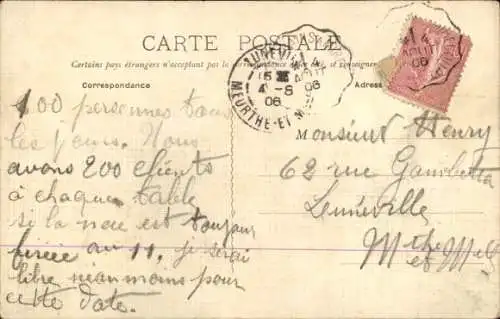 CARTE POSTALE
Certains pays étrangers n'acceptent pas la correspondance de ce côté, se renseigner
Correspondance
Adresse
LUNEVILLE
15
4 - 8
06
MEURTHE-ET-M
4
AOUT
06
100 personnes tous
les jours. Nous
avons 200 clients
à chaque table
si la noce est toujours
fixée au 11, je serai
libre néanmoins pour
cette date.
Monsieur Henry
62 rue Gambetta
Lunéville
Mthe et Mlle